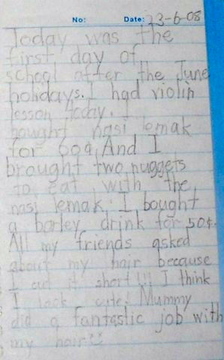 No: Date: 23-6-08
Today was the
first day of
school after the June
holidays. I had violin
lesson today. I
bought nasi lemak
for 60¢, And I
brought two nuggets
to eat with the
nasi lemak. I bought
a barley drink for 50¢.
All my friends asked
about my hair because
I cut it short!!! I think
I look cute. Mummy
did a fantastic job with
my hair!!